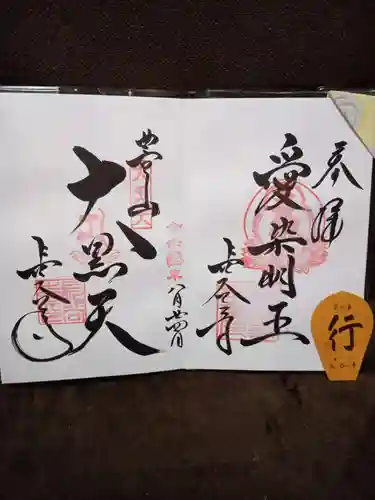 奉拝
愛染明王
長谷寺
豊山
大黒天
八月廿四日
長谷寺
行